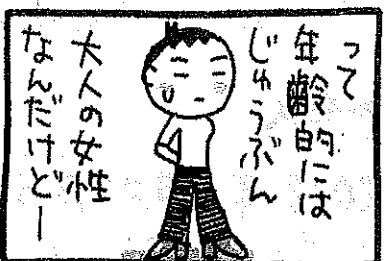 って
年齢的には
じゅうぶん
大人の女性
なんだけどー